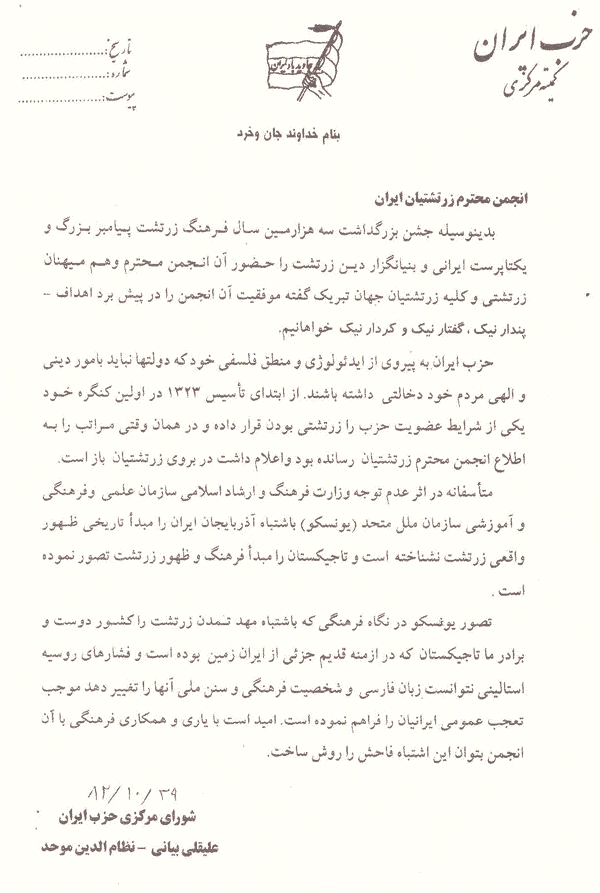 حزب ایران
کمیته مرکزی
تاریخ:......................
شماره:......................
پیوست:......................
جاوید باد ایران
بنام خداوند جان وخرد
انجمن محترم زرتشتیان ایران
بدینوسیله جشن بزرگداشت سه هزارمین سال فرهنگ زرتشت پیامبر بزرگ و
یکتاپرست ایرانی و بنیانگزار دین زرتشت را حضور آن انجمن محترم وهم میهنان
زرتشتی و کلیه زرتشتیان جهان تبریک گفته موفقیت آن انجمن را در پیش برد اهداف –
پندار نیک ، گفتار نیک و کردار نیک خواهانیم.
حزب ایران به پیروی از ایدئولوژی و منطق فلسفی خود که دولتها نباید بامور دینی
و الهی مردم خود دخالتی داشته باشند. از ابتدای تأسیس ۱۳۲۳ در اولین کنگره خود
یکی از شرایط عضویت حزب را زرتشتی بودن قرار داده و در همان وقتی مراتب را به
اطلاع انجمن محترم زرتشتیان رسانده بود واعلام داشت در بروی زرتشتیان باز است.
متأسفانه در اثر عدم توجه وزارت فرهنگ و ارشاد اسلامی سازمان علمی وفرهنگی
و آموزشی سازمان ملل متحد (یونسکو) باشتباه آذربایجان ایران را مبدأ تاریخی ظهور
واقعی زرتشت نشناخته است و تاجیکستان را مبدأ فرهنگ و ظهور زرتشت تصور نموده
است .
تصور یونسکو در نگاه فرهنگی که باشتباه مهد تمدن زرتشت را کشور دوست و
برادر ما تاجیکستان که در ازمنه قدیم جزئی از ایران زمین بوده است و فشارهای روسیه
استالینی نتوانست زبان فارسی و شخصیت فرهنگی و سنن ملی آنها را تغییر دهد موجب
تعجب عمومی ایرانیان را فراهم نموده است. امید است با یاری و همکاری فرهنگی با آن
انجمن بتوان این اشتباه فاحش را روش ساخت.
۸۲/۱۰/۲۹
شورای مرکزی حزب ایران
علیقلی بیانی – نظام الدین موحد